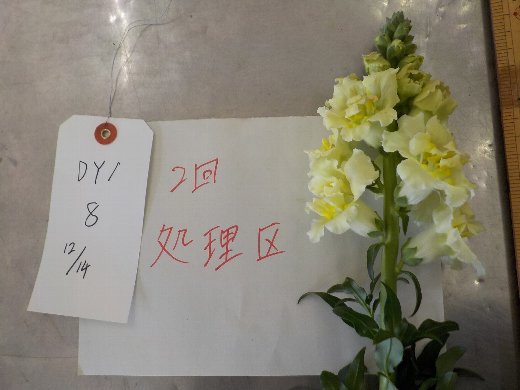 DY1
8
12/14
2回
処理区